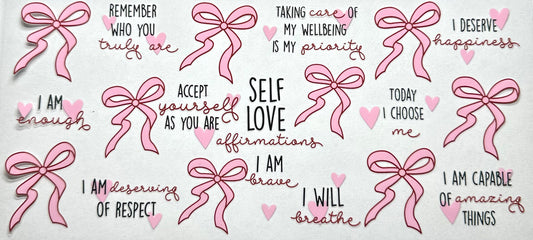 REMEMBER
WHO YOU
truly are
TAKING care OF
MY WELLBEING
IS MY priority
I DESERVE
happiness
I AM
enough
ACCEPT
yourself
AS YOU ARE
SELF
LOVE
affirmations
TODAY
I CHOOSE
me
I AM deserving
OF RESPECT
I AM
brave
I WILL
breathe
I AM CAPABLE
OF amazing
THINGS